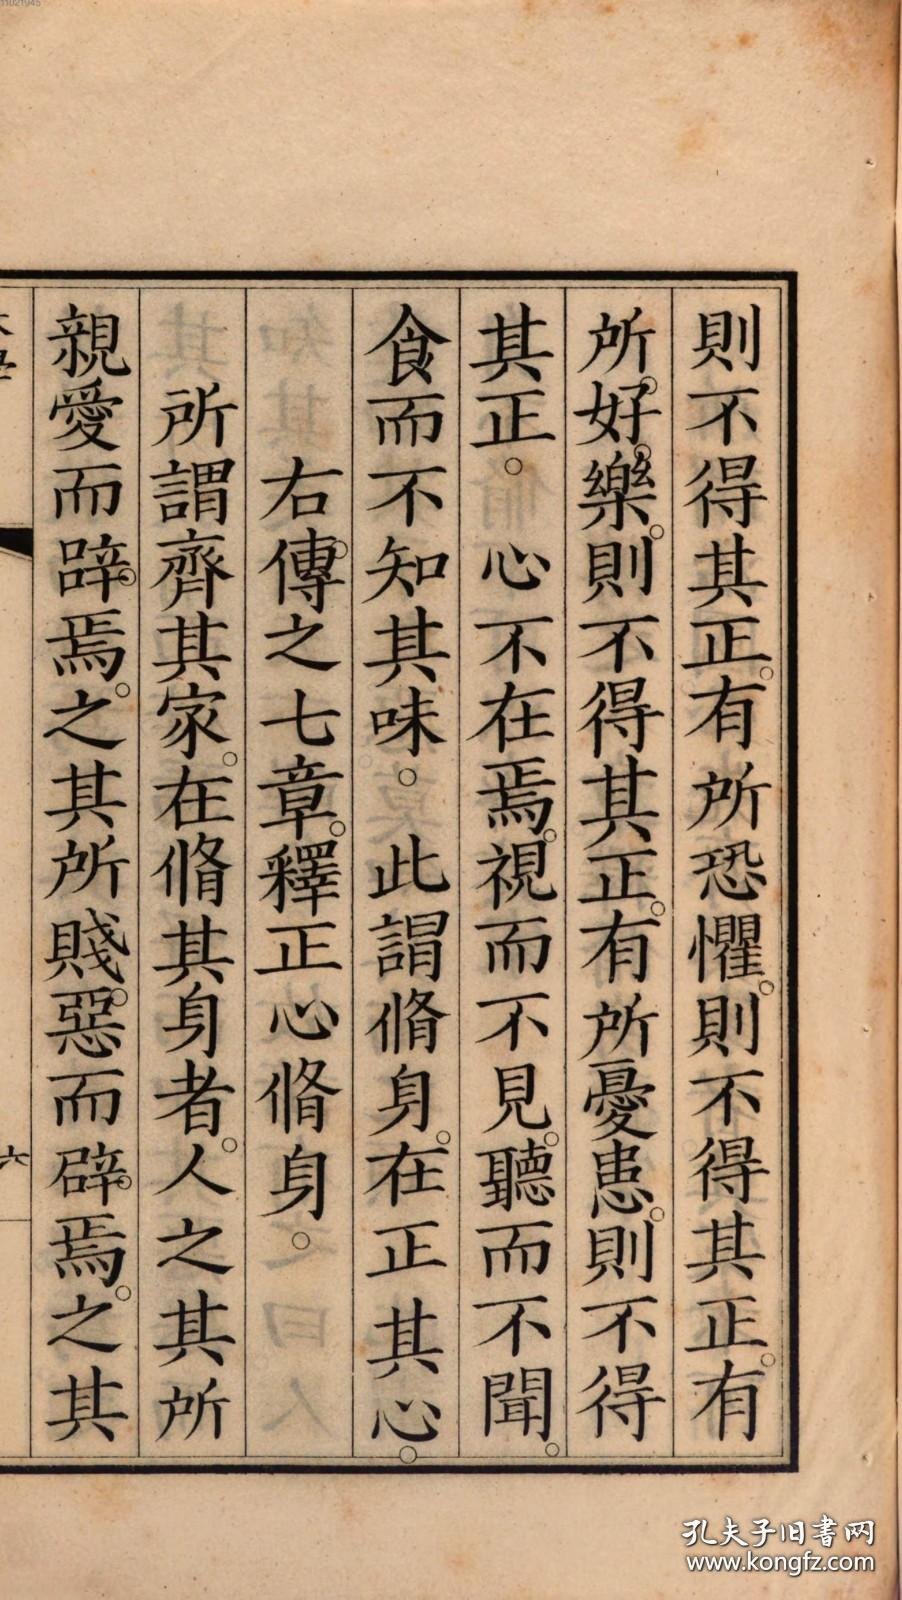 則不得其正。有所恐懼。則不得其正。有
所。好。樂。則不得其正。有所憂患。則不得
其正。心不在焉。視而不見。聽而不聞。
食而不知其味。此謂脩身。在正其心。
右傳。之七章。釋正心脩身。
所謂齊其家。在脩其身者。人之其所
親愛而辟。焉。之其所賤。惡而辟。焉。之其
六
孔夫子旧書网
www.kongfz.com
11021945